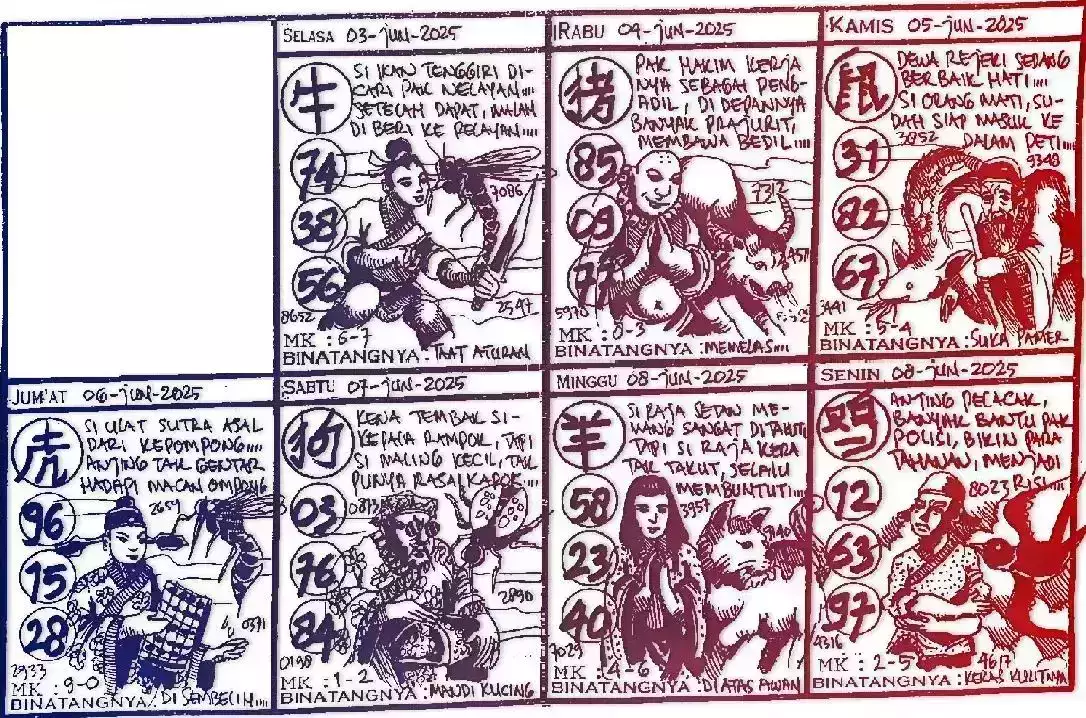 SELASA 03-JUN-2025
牛
SI IKAN TENGGIRI DI-
CARI PAK NELAYAN....
SETELAH DAPAT, MALAH
DI BERI KE PELAYAN....
74
7086
38
56
8652
2547
MK : 6-7
BINATANGNYA : TAAT ATURAN
RABU 04-JUN-2025
猪
PAK HAKIM KERJA
NYA SEBAGAI PENG-
ADIL, DI DEPANNYA
BANYAK PRAJURIT,
MEMBAWA BEDIL....
85
7312
09
77
5970
MK : 0-3
BINATANGNYA : MEMELAS....
KAMIS 05-JUN-2025
鼠
DEWA REJEKI SEDANG
BERBAIK HATI....
SI ORANG MATI, SU-
DAH SIAP MASUK KE
DALAM PETI....
3852
9340
31
82
67
MK : 5-4
BINATANGNYA : SUKA PAMER
JUM'AT 06-JUN-2025
虎
SI ULAT SUTRA ASAL
DARI KEPOMPONG....
ANJING TAK GENTAR
HADAPI MACAN OMPONG
96
2659
15
28
0371
2933
MK : 9-0
BINATANGNYA : DI SEMBELIH....
SABTU 07-JUN-2025
狗
KENA TEMBAK SI-
KEPALA RAMPOK, TAPI
SI MALING KECIL, TAK
PUNYA RASA KAPOK....
03
76
2890
84
0198
MK : 1-2
BINATANGNYA : MANDI KUCING
MINGGU 08-JUN-2025
羊
SI RAJA SETAN ME-
MANG SANGAT DITAKUTI
TAPI SI RAJA KERA
TAK TAKUT, SELALU
MEMBUNTUTI....
58
3957
23
40
7029
MK : 4-6
BINATANGNYA : DI ATAS AWAN
SENIN 09-JUN-2025
鸡
ANJING PELACAK,
BANYAK BANTU PAK
POLISI, BIKIN PARA
TAHANAN, MENJADI
RISI....
8023
12
63
97
4316
4617
MK : 2-5
BINATANGNYA : KERAS KULITNYA